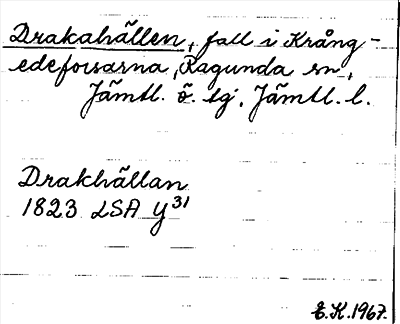 Drakahällen, fall i Krång-
edeforsarna, Ragunda sn,
Jämtl. ö. tg, Jämtl. l.
Drakhällan
1823 LSA Y31
E.K.1967.